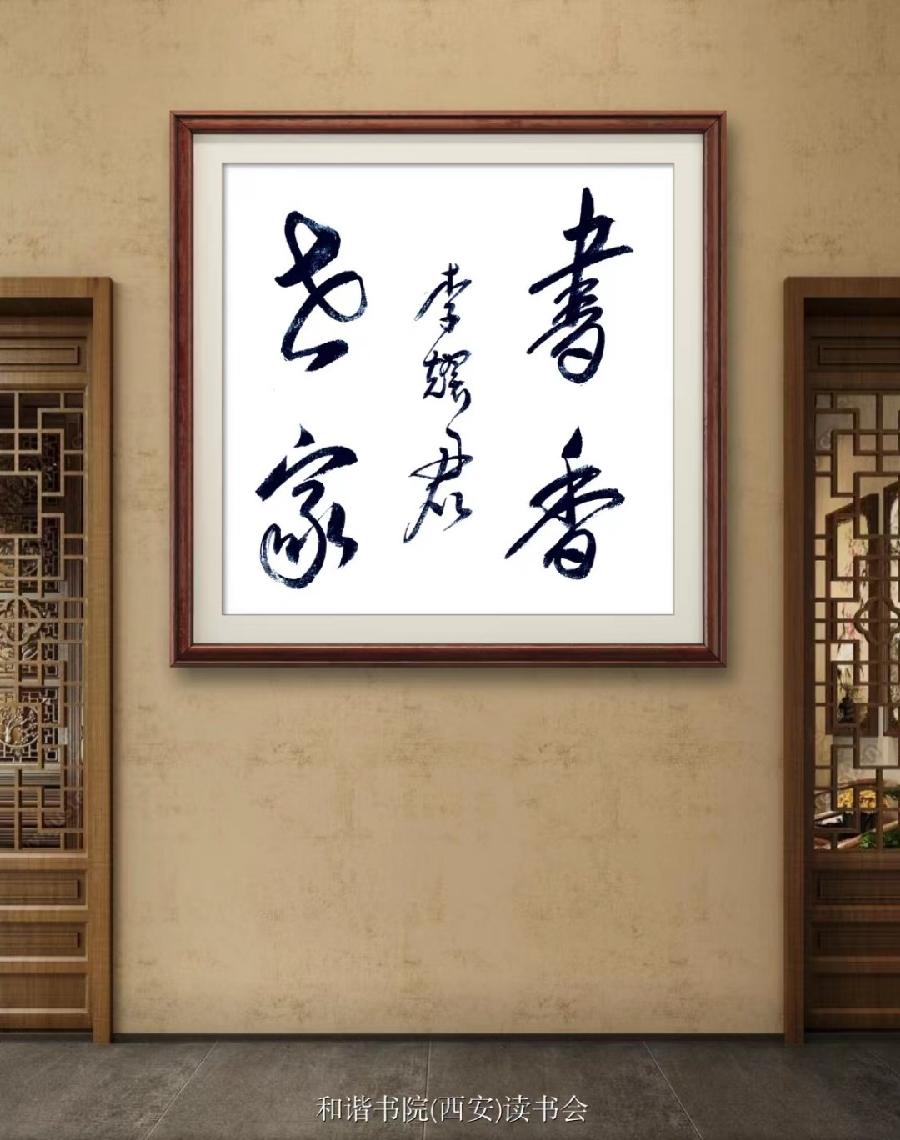 書香
李耀君
世家
和谐书院(西安)读书会